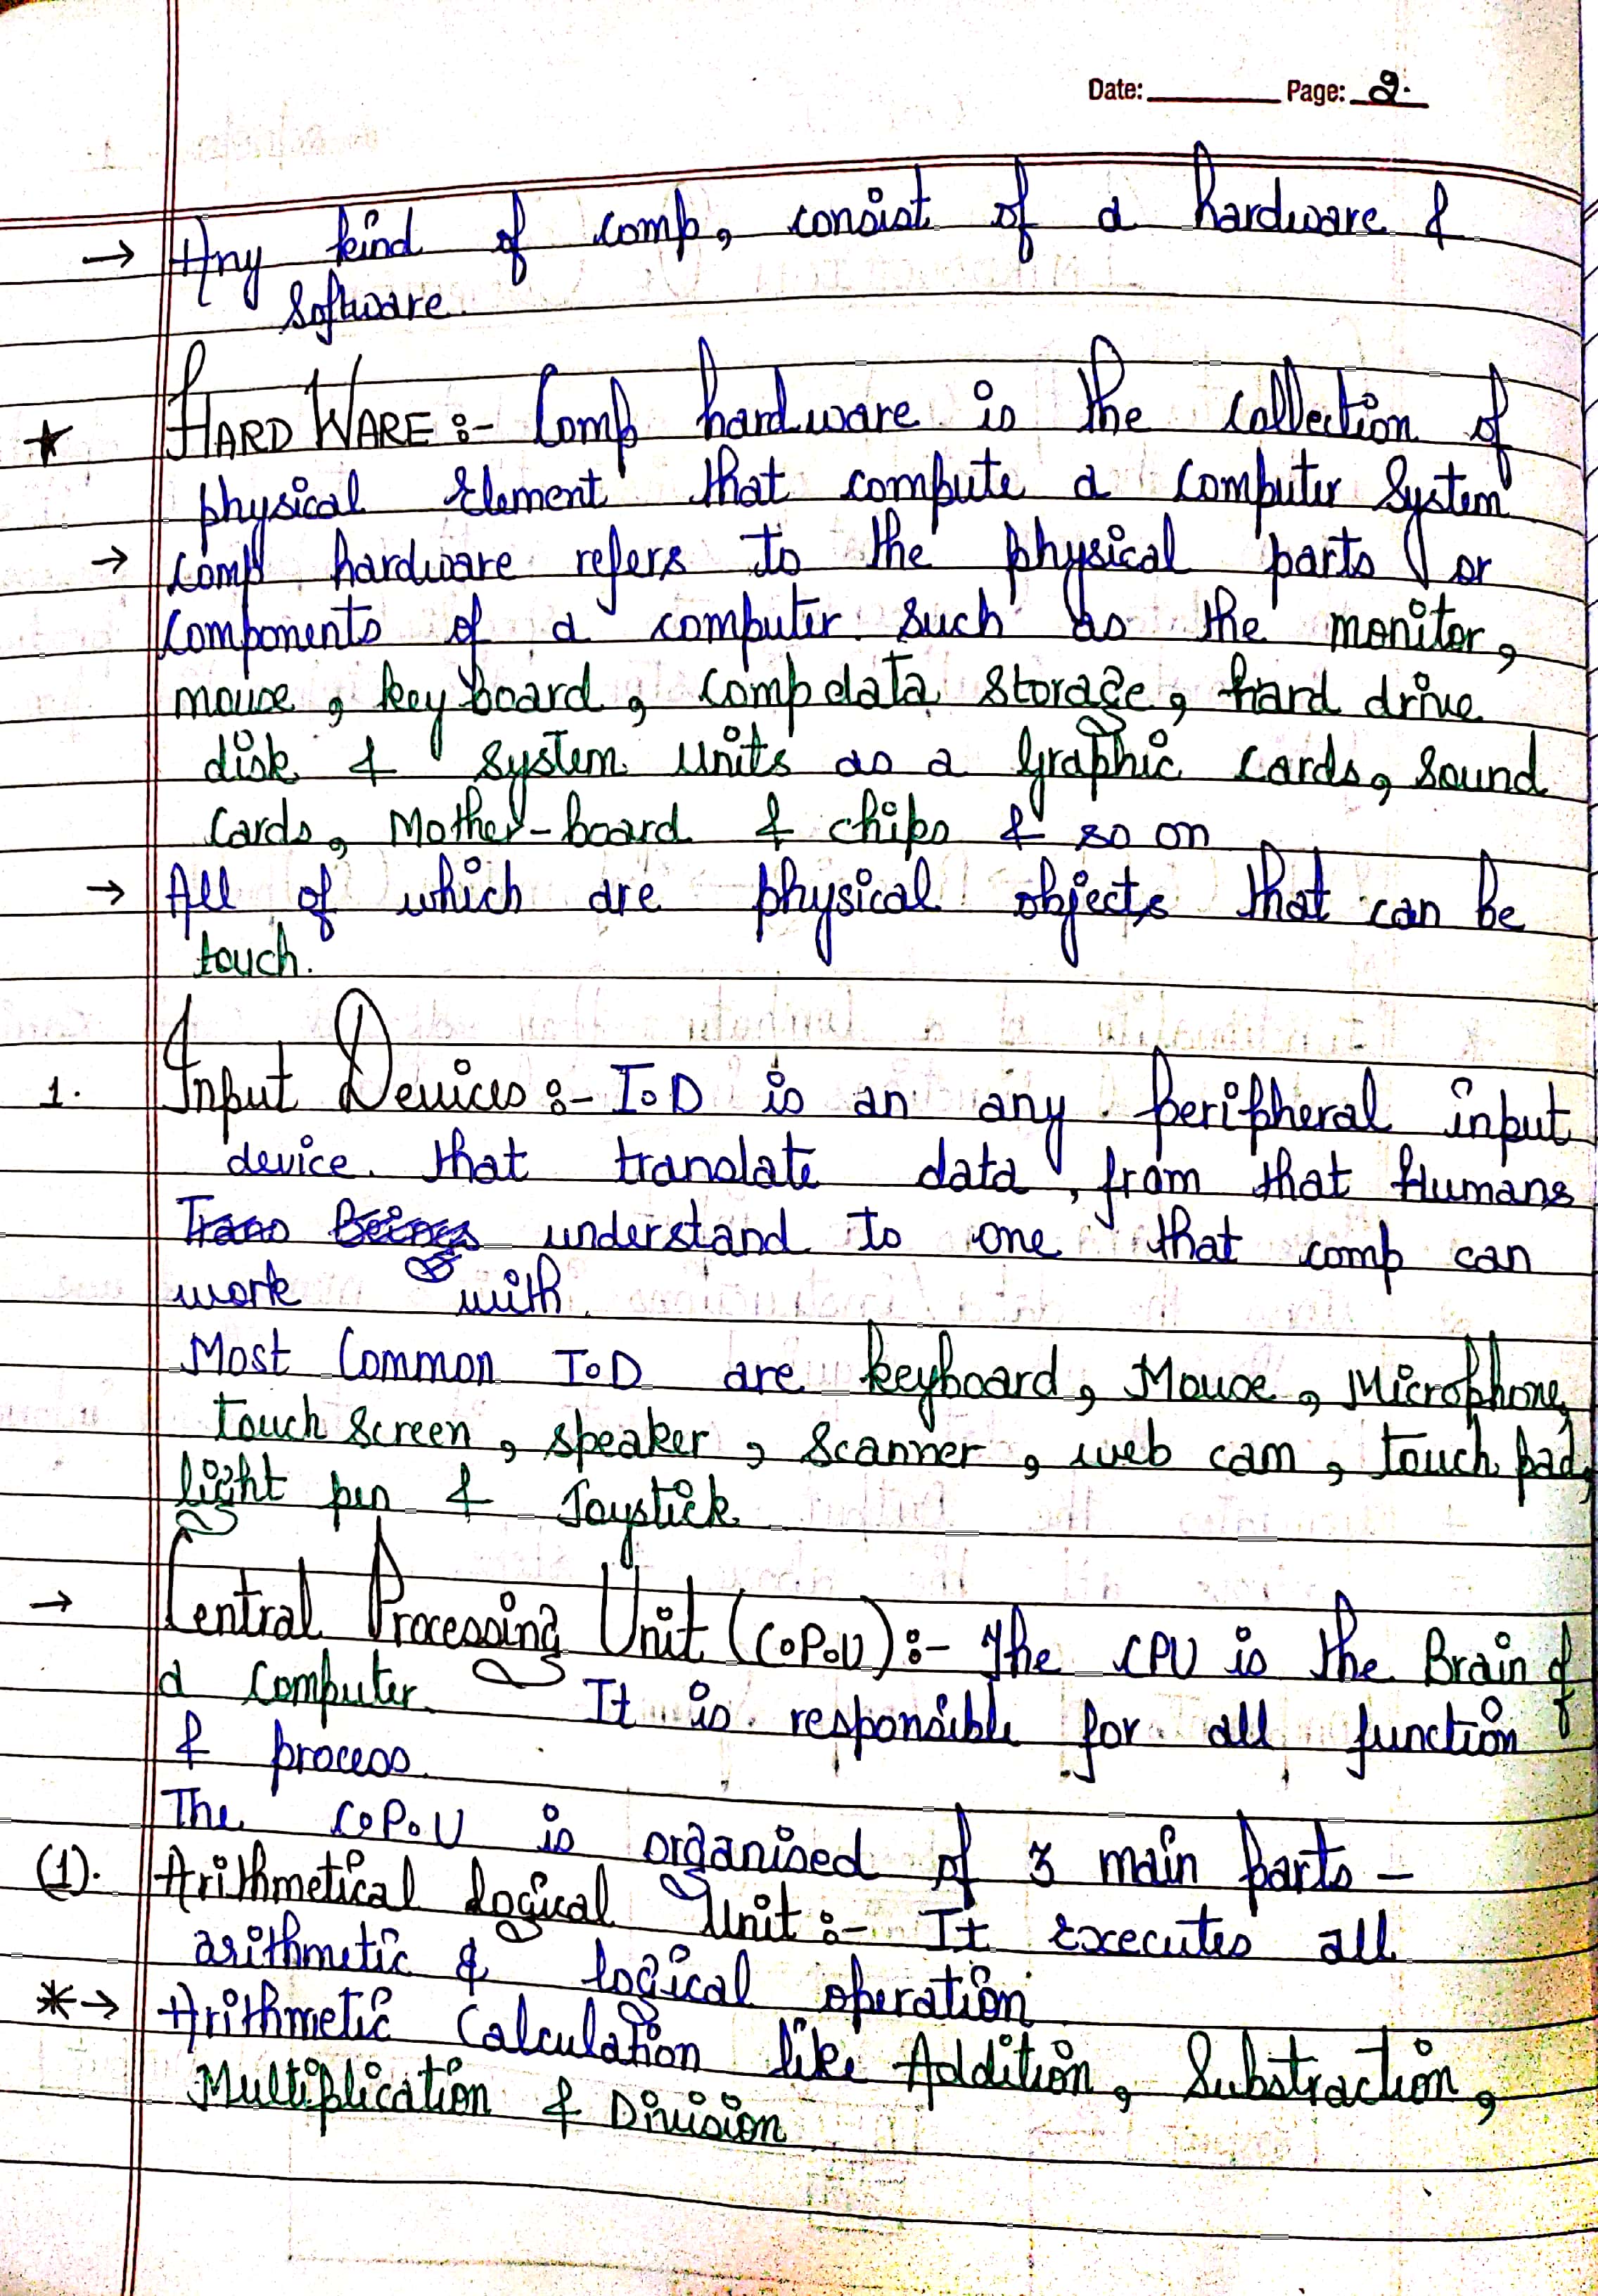 Date: Page: 2.
→ Any kind of comp, consist of a hardware &
software.
★ HARD WARE :- Comp hardware is the collection of
physical element that compute a computer system
→ comp hardware refers to the physical parts or
components of a computer such as the monitor,
mouse, key board, comp data storage, hard drive
disk & system units as a graphic cards, sound
cards, Mother-board & chips & so on
→ All of which are physical objects that can be
touch.
1. Input Devices :- I.D is an any peripheral input
device that translate data, from that Humans
understand to one that comp can
work with.
Most Common I.D are keyboard, Mouse, Microphone,
touch screen, speaker, scanner, web cam, touch pad,
light pen & Joystick
→ Central Processing Unit (C.P.U) :- The CPU is the Brain of
a computer. It is responsible for all function
& process.
The C.P.U is organised of 3 main parts –
(1). Arithmetical logical Unit :- It executes all
arithmetic & logical operation
*→ Arithmetic Calculation like Addition, Substraction,
Multiplication & Division